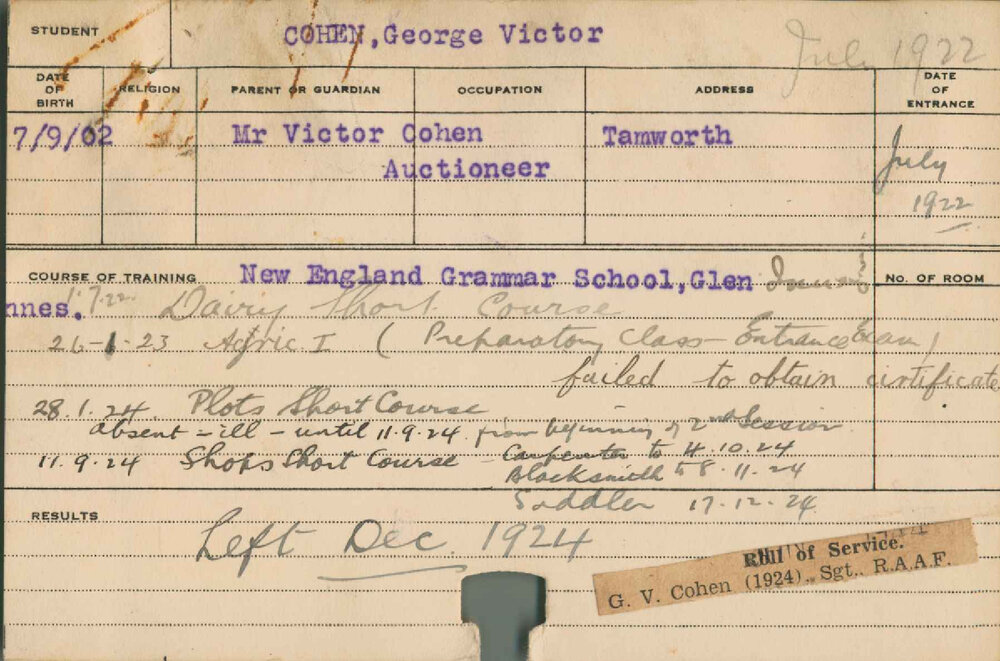 STUDENT COHEN, George Victor July 1922
DATE OF BIRTH RELIGION PARENT OR GUARDIAN OCCUPATION ADDRESS DATE OF ENTRANCE
7/9/02 Mr Victor Cohen Tamworth July
Auctioneer
1922
COURSE OF TRAINING New England Grammar School, Glen No. OF ROOM
nnes. 1.7.22 Dairy Short Course
26-1-23 Agric. I (Preparatory Class - Entrance Exam)
failed to obtain cirtificate
28.1.24. Plots Short Course
Absent - ill - until 11.9.24. from beginning of 2nd Session
11.9.24 Shops Short Course - Carpenter to 4.10.24
Blacksmith to 8.11.24
Saddler 17.12.24
RESULTS
Left Dec. 1924
Roll of Service.
G. V. Cohen (1924), Sgt., R.A.A.F.